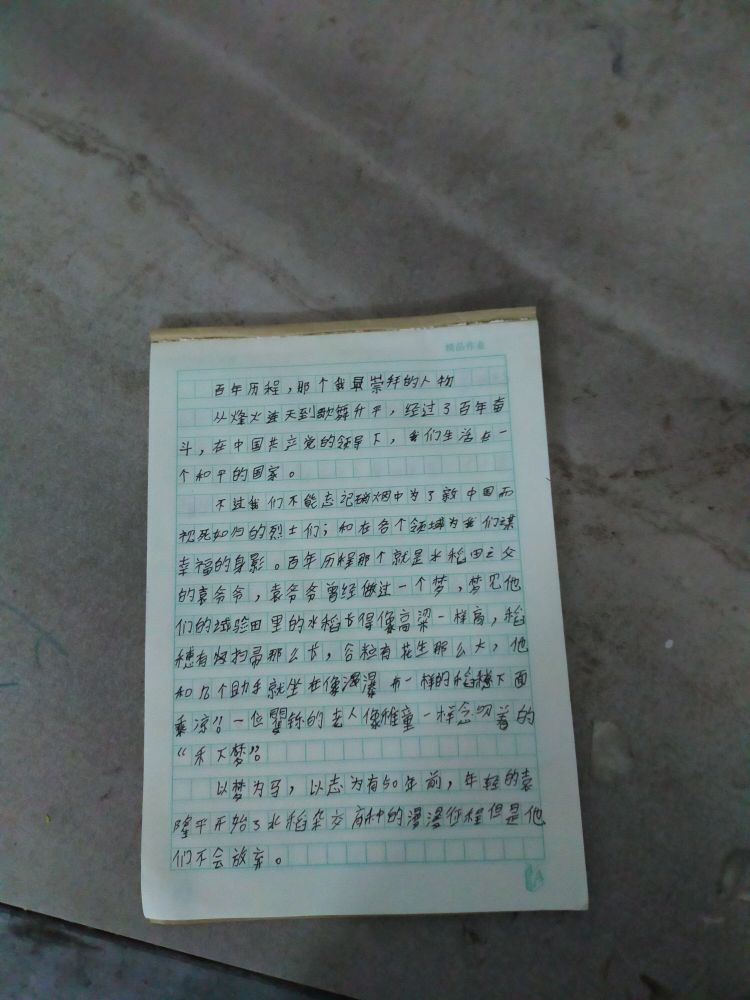 精品作业
百年历程，那个我最崇拜的人物
从烽火连天到歌舞升平，经过了百年奋
斗，在中国共产党的领导下，我们生活在一
个和平的国家。
不过我们不能忘记硝烟中为了新中国而
视死如归的烈士们；和在各个领域为我们谋
幸福的身影。百年历程那个就是水稻田之父
的袁爷爷，袁爷爷曾经做过一个梦，梦见他
们的试验田里的水稻长得像高粱一样高，稻
穗有似扫帚那么长，谷粒有花生那么大，他
和几个助手就坐在像瀑布一样的稻穗下面
乘凉！一位矍铄的老人像稚童一样念叨着的
“禾下梦”。
以梦为马，以志为有50年前，年轻的袁
隆平开始了水稻杂交育种的漫漫征程但是他
们不会放弃。